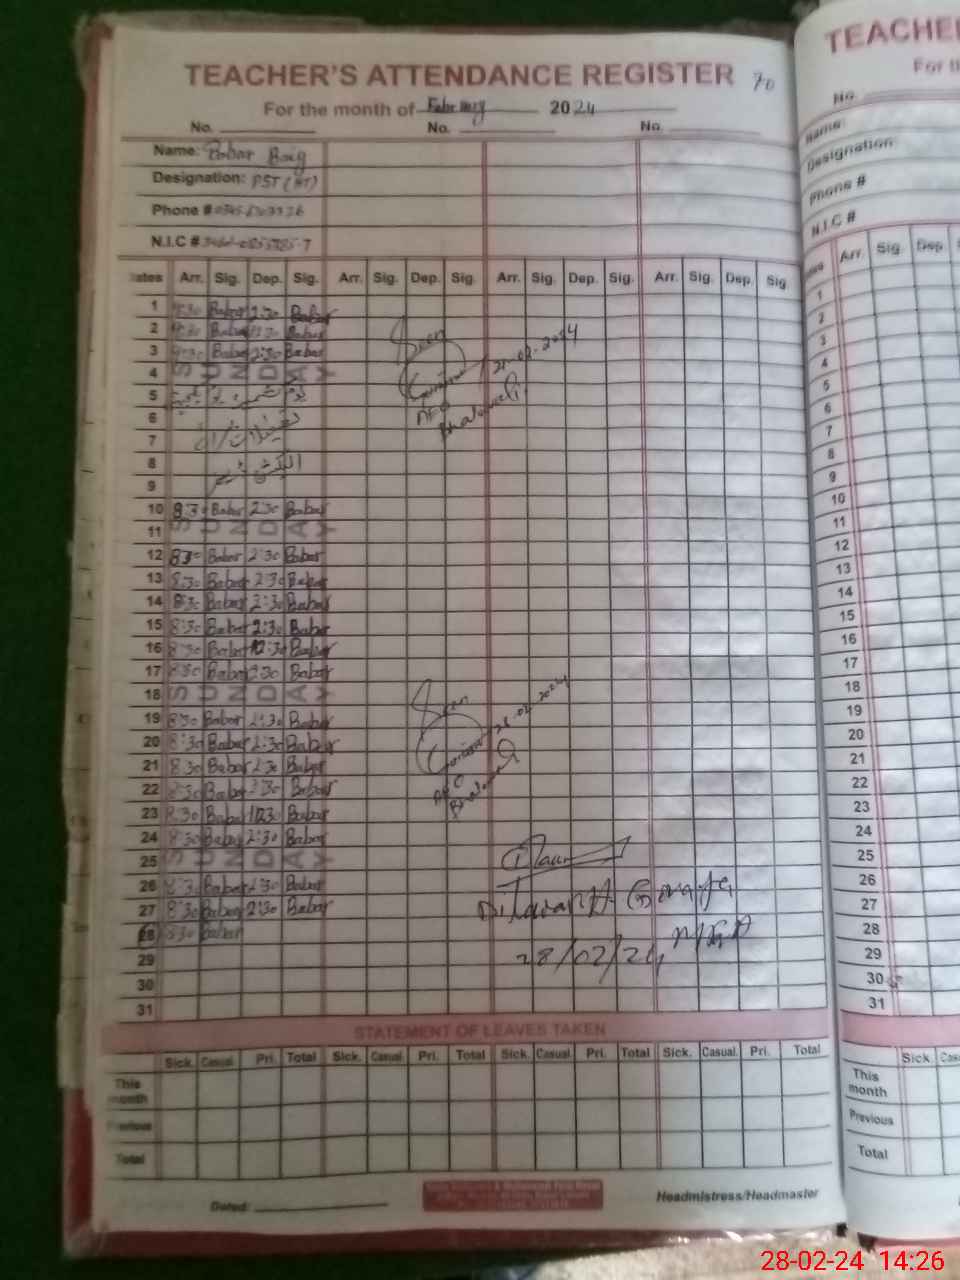 TEACHER'S ATTENDANCE REGISTER 70
For the month of February 2024
No. No. No.
Name: Babar Baig
Designation: PST (HT)
Phone #
N.I.C #
Dates Arr. Sig. Dep. Sig. Arr. Sig. Dep. Sig. Arr. Sig. Dep. Sig. Arr. Sig. Dep. Sig
1 8:30 Babar 2:30 Babar
2 8:30 Babar 12:30 Babar
3 8:30 Babar 2:30 Babar
4 SUNDAY
5
6
7 تعطیلات
8 الیکشن
9
10 8:30 Babar 2:30 Babar
11 SUNDAY
12 830 Babar 2:30 Babar
13 8:30 Babar 2:30 Babar
14 8:30 Babar 2:30 Babar
15 8:30 Babar 2:30 Babar
16 8:30 Babar 12:30 Babar
17 8:30 Babar 2:30 Babar
18 SUNDAY
19 8:30 Babar 2:30 Babar
20 8:30 Babar 2:30 Babar
21 8:30 Babar 2:30 Babar
22 8:30 Babar 2:30 Babar
23 8:30 Babar 1230 Babar
24 8:30 Babar 2:30 Babar
25 SUNDAY
26 8:30 Babar 2:30 Babar
27 8:30 Babar 2:30 Babar
28 830 Babar
29
30
31
Seen
21-02-2024
AEO
Bhalwal
Seen
28-02-2024
AEO
Bhalwal
28/02/24
STATEMENT OF LEAVES TAKEN
Sick. Casual. Pri. Total Sick. Casual. Pri. Total Sick. Casual. Pri. Total Sick. Casual. Pri. Total
This month
Previous
Total
Dated: Headmistress/Headmaster
TEACHE
For th
No.
Name:
Designation:
Phone #
N.I.C #
Arr. Sig. Dep Sig
1
2
3
4
5
6
7
8
9
10
11
12
13
14
15
16
17
18
19
20
21
22
23
24
25
26
27
28
29
30
31
Sick. Cas
This month
Previous
Total
28-02-24 14:26